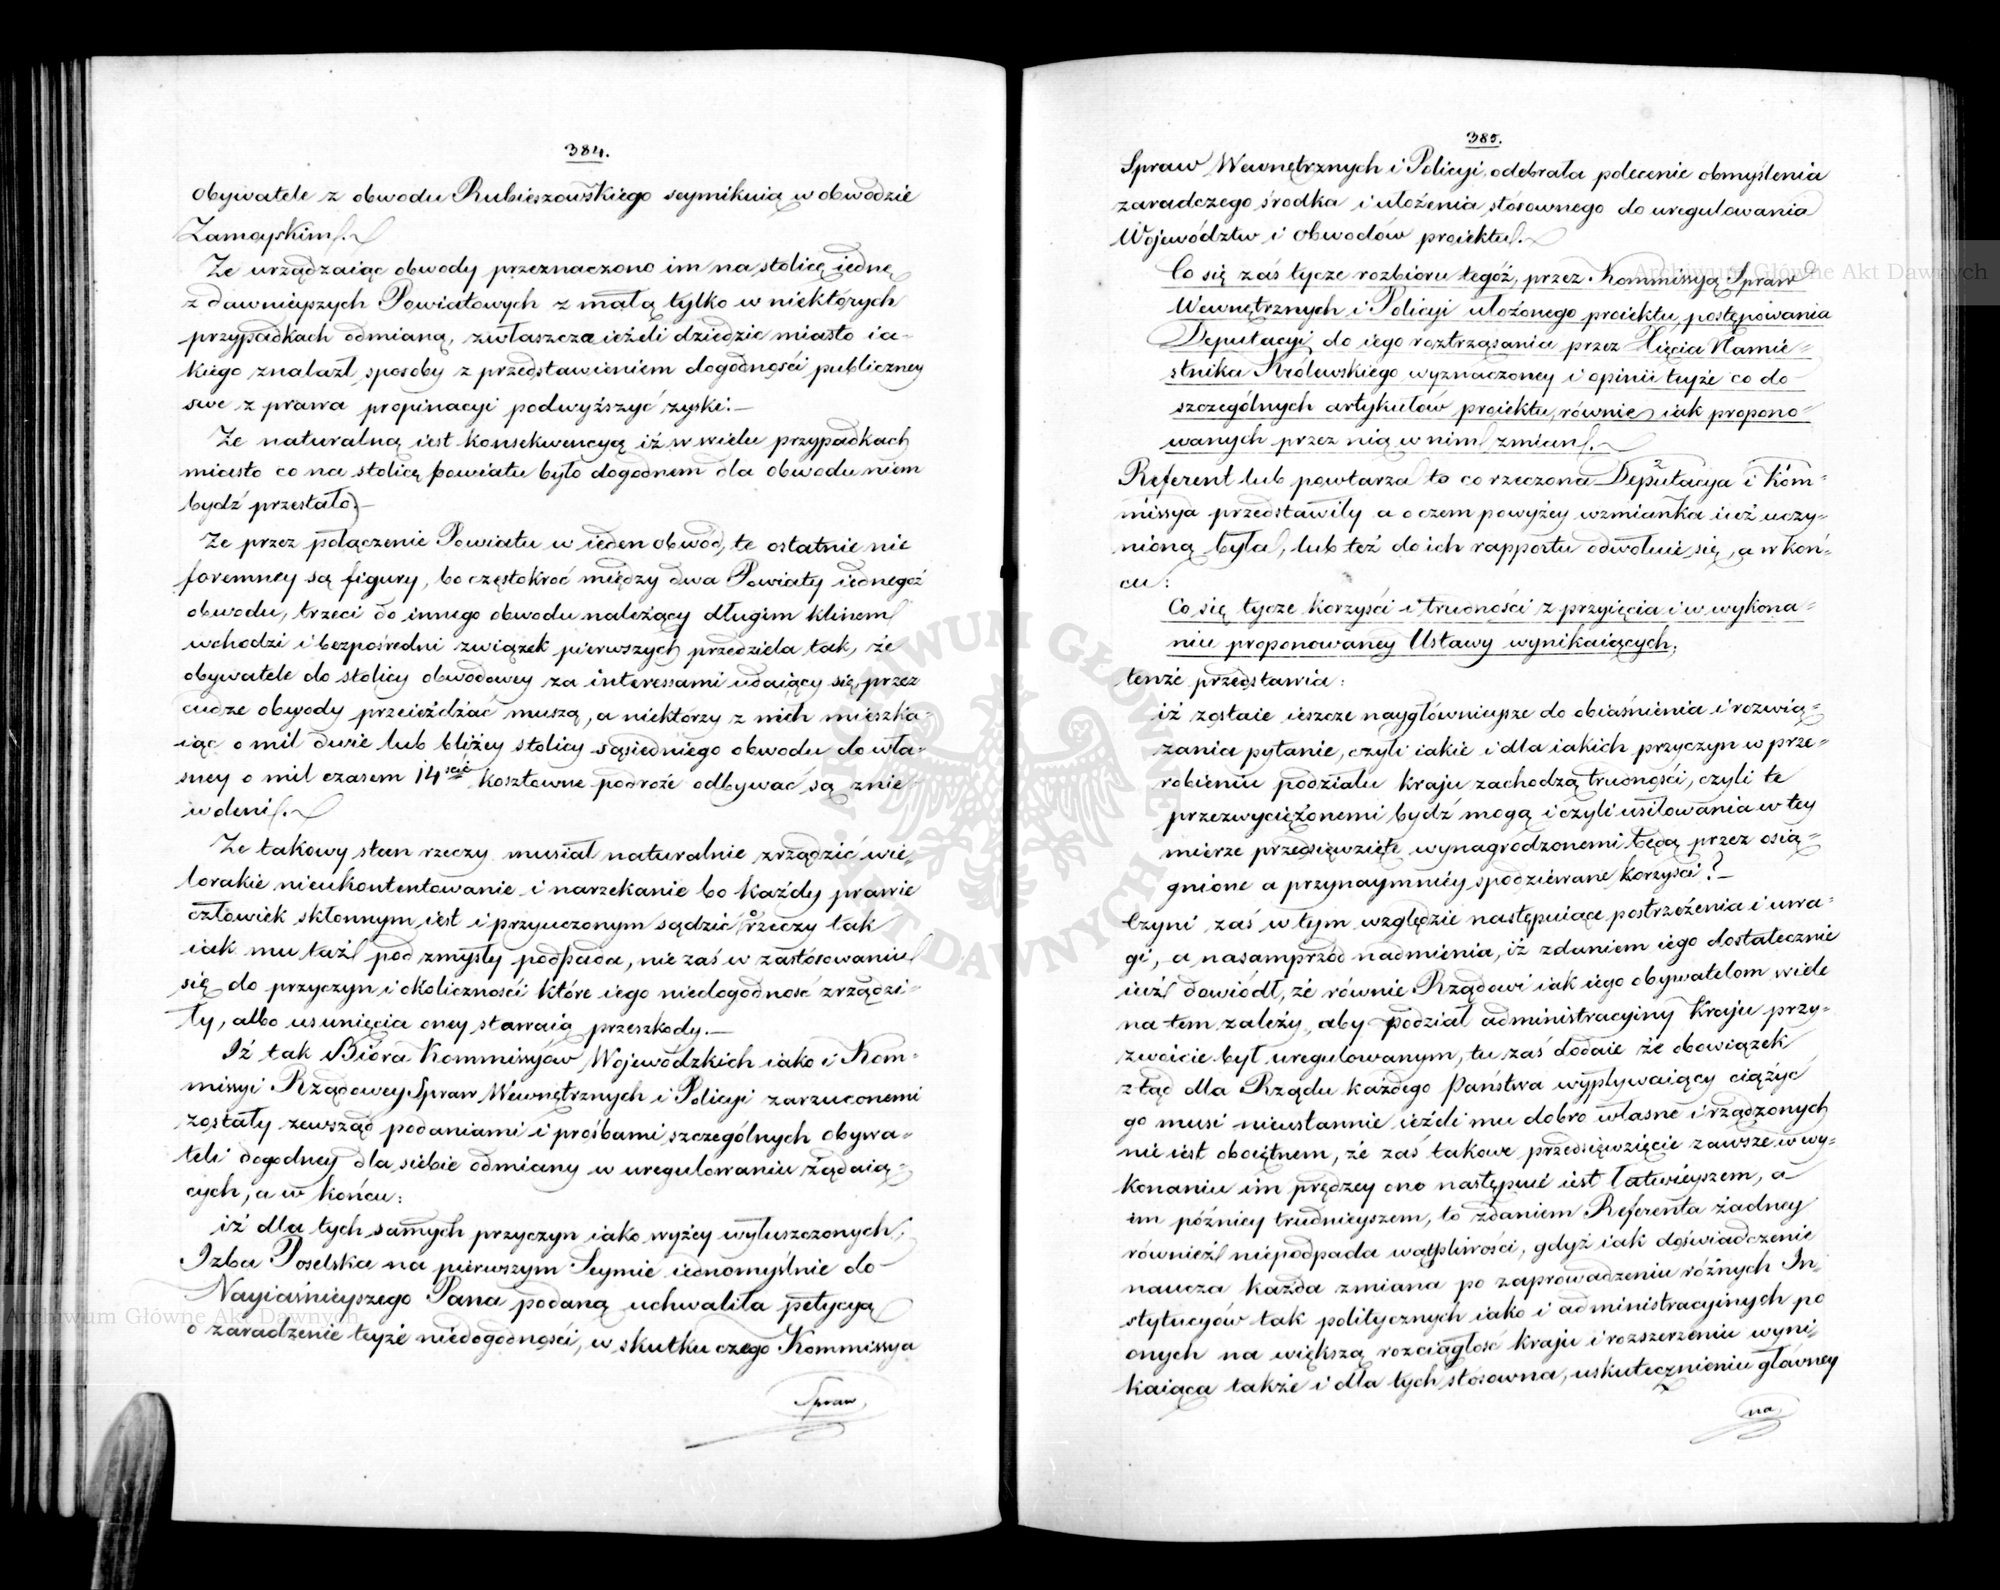 384.
obywatele z obwodu Rubieszowskiego seymikuią w obwodzie
Zamoyskim.
Że urządzaiąc obwody przeznaczono im na stolicę iednę
z dawnieyszych Powiatowych z małą tylko w niektórych
przypadkach odmianą, zwłaszcza ieżeli dziedzic miasta ia-
kiego znalazł sposoby z przedstawieniem dogodności publiczney
swe z prawa propinacyi podwyższyć zyski.—
Że naturalną iest konsekwencyą iż w wielu przypadkach
miasto co na stolicę powiatu było dogodnem dla obwodu niem
bydź przestało.—
Że przez połączenie Powiatu w ieden obwód, te ostatnie nie
foremney są figury, bo częstokroć między dwa Powiaty iednegoż
obwodu, trzeci do innego obwodu należący długim klinem
wchodzi i bezpośredni związek pierwszych przedziela tak, że
obywatele do stolicy obwodowey za interessami udaiący się, przez
cudze obwody przeieżdżać muszą, a niektórzy z nich mieszka-
iąc o mil dwie lub bliżey stolicy sąsiedniego obwodu do wła-
sney o mil czasem 14ście kosztowne podróże odbywać są znie-
woleni.
Że takowy stan rzeczy musiał naturalnie zrządzić wie-
lorakie nieukontentowanie i narzekanie bo każdy prawie
człowiek skłonnym iest i przyuczonym sądzić o rzeczy tak
iak mu taż pod zmysły podpada, nie zaś w zastósowaniu
się do przyczyn i okoliczności które iego niedogodność zrządzi-
ły, albo usunięcia oney stawaią przeszkody.—
Iż tak Bióra Kommissyów Woiewódzkich iako i Kom-
missyi Rządowey Spraw Wewnętrznych i Policyi zarzuconemi
zostały zewsząd podaniami i prośbami szczególnych obywa-
teli dogodney dla siebie odmiany w uregulowaniu żądaią-
cych, a w końcu:
iż dla tych samych przyczyn iako wyżey wyłuszczonych,
Izba Poselska na pierwszym Seymie iednomyślnie do
Nayiaśnieyszego Pana podaną uchwaliła petycyą
o zaradzenie teyże niedogodności, w skutku czego Kommissya
Spraw
385.
Spraw Wewnętrznych i Policyi, odebrała polecenie obmyślenia
zaradczego środka i ułożenia stósownego do uregulowania
Województw i obwodów proiektu.
Co się zaś tycze rozbioru tegóż, przez Kommissyą Spraw
Wewnętrznych i Policyi ułożonego proiektu, postępowania
Deputacyi do iego roztrząsania przez Xięcia Namie-
stnika Królewskiego wyznaczoney i opinii teyże co do
szczególnych artykułów proiektu, równie iak propono-
wanych przez nią w nim zmian.
Referent lub powtarza to co rzeczona Deputacya i Kom-
missya przedstawiły a o czem powyżey wzmianka iuż uczy-
nioną była, lub też do ich rapportu odwołuie się, a w koń-
cu:
Co się tycze korzyści i trudności z przyięcia i w wykona-
niu proponowaney Ustawy wynikaiących,
tenże przedstawia:
iż zostaie ieszcze naygłównieysze do obiaśnienia i rozwią-
zania pytanie, czyli iakie i dla iakich przyczyn w prze-
robieniu podziału kraju zachodzą trudności, czyli te
przezwyciężonemi bydź mogą i czyli usiłowania w tey
mierze przedsięwzięte wynagrodzonemi będą przez osią-
gnione a przynaymniéy spodziéwane korzyści?—
Czyni zaś w tym względzie następuiące postrzeżenia i uwa-
gi, a nasamprzód nadmienia, iż zdaniem iego dostatecznie
iuż dowiódł, że równie Rządowi iak iego obywatelom wiele
na tem zależy, aby podział administracyiny Kraju przy-
zwoicie był uregulowanym, tu zaś dodaie że obowiązek
ztąd dla Rządu każdego Państwa wypływaiący ciążyć
go musi nieustannie ieżeli mu dobro własne i rządzonych
nie iest oboiętnem, że zaś takowe przedsięwzięcie zawsze w wy-
konaniu im prędzey ono nastąpiić iest łatwieyszem, a
im późniey trudnieyszem, to zdaniem Referenta żadney
również niepodpada wątpliwości, gdyż iak doświadczenie
naucza każda zmiana po zaprowadzeniu różnych In-
stytucyów tak politycznych iako i administracyinych po
onych na większą rozciągłość kraju i rozszerzeniu wyni-
kaiąca także i dla tych stósowna, uskutecznieniu główney
na